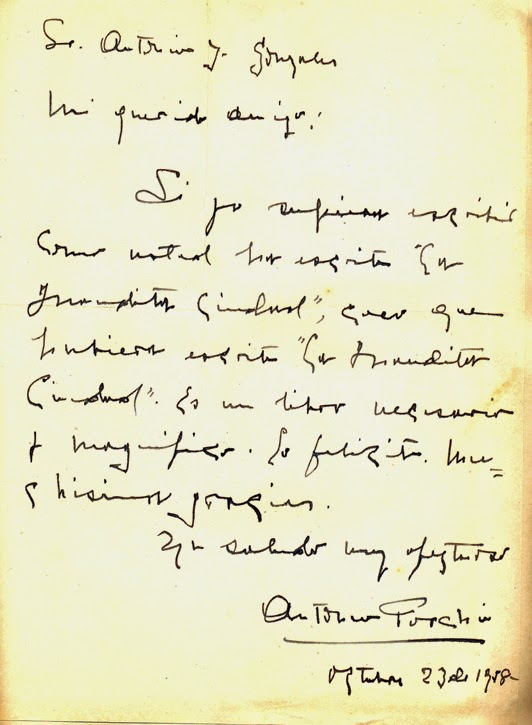 Sr. Antonio J. González
Mi querido amigo:
Si yo supiera escribir
como usted ha escrito "La
Inaudita Ciudad", creo que
hubiera escrito "La Inaudita
Ciudad". Es un libro necesario
y magnífico. Lo felicito. Mu=
chísimas gracias.
Un saludo muy afectuoso
Antonio Porchia
Octubre 23 de 1958